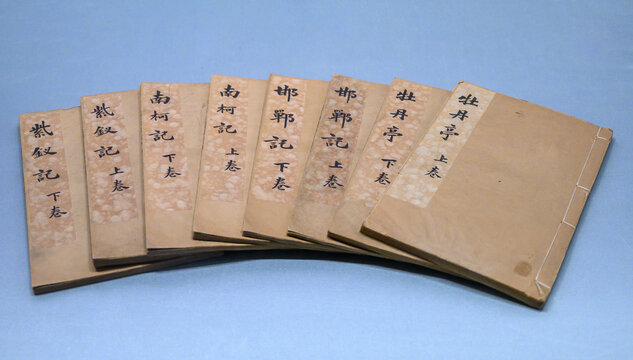 紫釵記 下卷
紫釵記 上卷
南柯記 下卷
南柯記 上卷
邯鄲記 下卷
邯鄲記 上卷
牡丹亭 下卷
牡丹亭 上卷